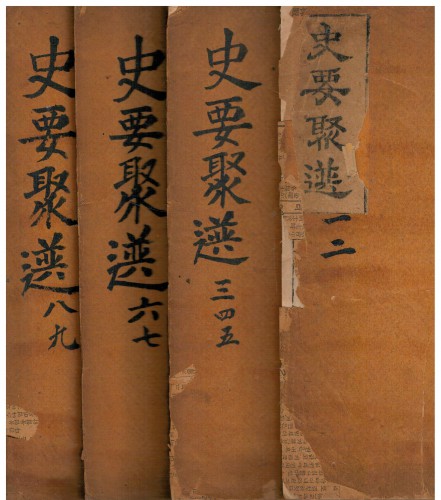 史要聚選 一二
史要聚選 三四五
史要聚選 六七
史要聚選 八九